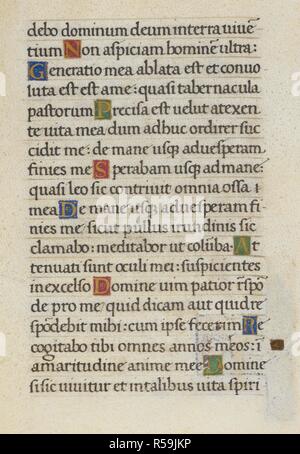 debo dominum deum in terra viuē
tium Non aspiciam hominē ultra:
Generatio mea ablata est et conuo
luta est est a me: quasi tabernacula
pastorum Precisa est uelut a texen
te uita mea dum adhuc ordirer suc
cidit me: de mane usq; ad uesperam
finies me Sperabam usq; ad mane:
quasi leo sic contriuit omnia ossa
mea De mane usq; ad uesperam fi
nies me sicut pullus irundinis sic
clamabo: meditabor ut coliiba. At
tenuati sunt oculi mei: suspicientes
in excelso Domine uim patior
de pro me quid dicam aut quid re
spōdebit mihi: cum ipse fecerim Re
cogitabo tibi omnes annos meos: ī
amaritudine anime mee Domine
si sic uiuitur et in talibus uita spiri
alamy
R59JKP